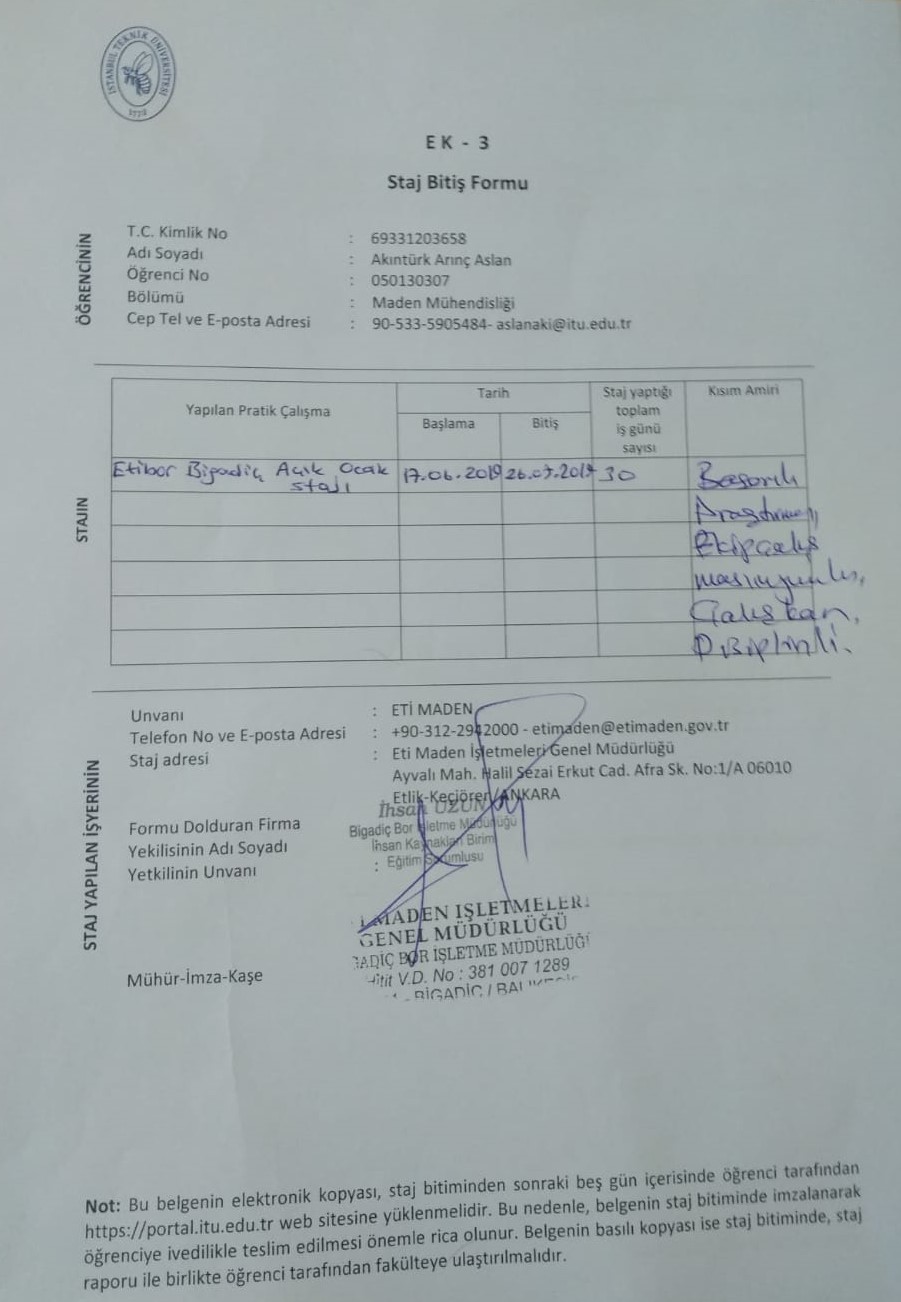 İSTANBUL TEKNİK ÜNİVERSİTESİ
1773
EK - 3
Staj Bitiş Formu
ÖĞRENCİNİN
T.C. Kimlik No : 69331203658
Adı Soyadı : Akıntürk Arınç Aslan
Öğrenci No : 050130307
Bölümü : Maden Mühendisliği
Cep Tel ve E-posta Adresi : 90-533-5905484- aslanaki@itu.edu.tr
STAJIN
Yapılan Pratik Çalışma Tarih Staj yaptığı toplam iş günü sayısı Kısım Amiri
Başlama Bitiş
Etibor Bigadiç Açık Ocak stajı 17.06.2019 26.07.2019 30 Başarılı
Araştırmacı,
Ekip çalış
masıuyumlu,
Çalışkan,
Disiplinli.
STAJ YAPILAN İŞYERİNİN
Unvanı : ETİ MADEN
Telefon No ve E-posta Adresi : +90-312-2942000 - etimaden@etimaden.gov.tr
Staj adresi : Eti Maden İşletmeleri Genel Müdürlüğü
Ayvalı Mah. Halil Sezai Erkut Cad. Afra Sk. No:1/A 06010
Etlik-Keçiören/ANKARA
İhsan UZUN
Formu Dolduran Firma Bigadiç Bor İşletme Müdürlüğü
Yekilisinin Adı Soyadı İhsan Kaynakları Birim
Yetkilinin Unvanı : Eğitim Sorumlusu
MADEN İŞLETMELERİ
GENEL MÜDÜRLÜĞÜ
GADİÇ BOR İŞLETME MÜDÜRLÜĞÜ
Mühür-İmza-Kaşe Hitit V.D. No : 381 007 1289
BİGADİÇ / BALIKESİR
Not: Bu belgenin elektronik kopyası, staj bitiminden sonraki beş gün içerisinde öğrenci tarafından
https://portal.itu.edu.tr web sitesine yüklenmelidir. Bu nedenle, belgenin staj bitiminde imzalanarak
öğrenciye ivedilikle teslim edilmesi önemle rica olunur. Belgenin basılı kopyası ise staj bitiminde, staj
raporu ile birlikte öğrenci tarafından fakülteye ulaştırılmalıdır.